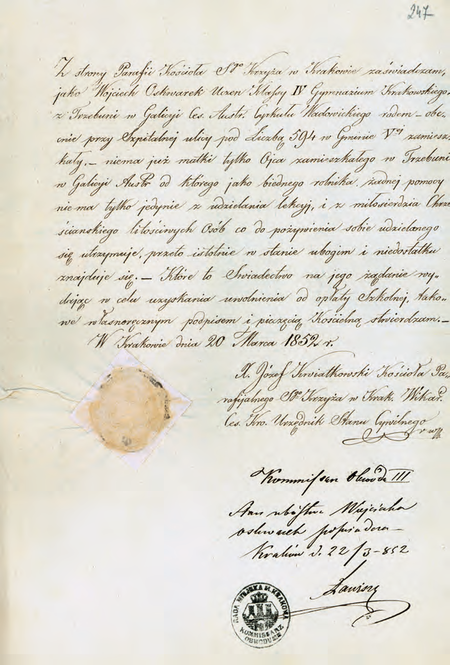 247
Z strony Parafii Kościoła Sgo Krzyża w Krakowie zaświadczam,
jako Wojciech Oskwarek Uczeń Klassy IV Gymnazium Krakowskiego,
z Trzebuni w Galicyi Ces. Austr. Cyrkułu Wadowickiego rodem – obe-
cnie przy Szpitalnej ulicy pod Liczbą 594 w Gminie Vtej zamiesz-
kały, – niema już matki tylko Ojca zamieszkałego w Trzebuni
w Galicyi Austr. od którego jako biednego rolnika, żadnej pomocy
nie ma tylko jedynie z udzielania lekcyj, i z miłosierdzia Chrze-
ściańskiego litościwych Osób co do pożywienia sobie udzielanego
się utrzymuje, przeto istotnie w stanie ubogim i niedostatku
znajduje się. – Które to Świadectwo na jego żądanie wy-
dając w celu uzyskania uwolnienia od opłaty Szkolnej, tako-
we własnoręcznym podpisem i pieczęcią Kościelną stwierdzam. –
W Krakowie dnia 20 Marca 1852 r.
X. Józef Kwiatkowski Kościoła Pa-
rafijalnego Sgo Krzyża w Krak. Wikar.
Ces. Kro. Urzędnik Stanu Cywilnego
Kommissarz Obwodu III
Wojciecha
poświadcza
Kraków d. 22/3 –852
RADA MIEJSKA M. KRAKOWA
KOMMISSARZ
OBWODU III